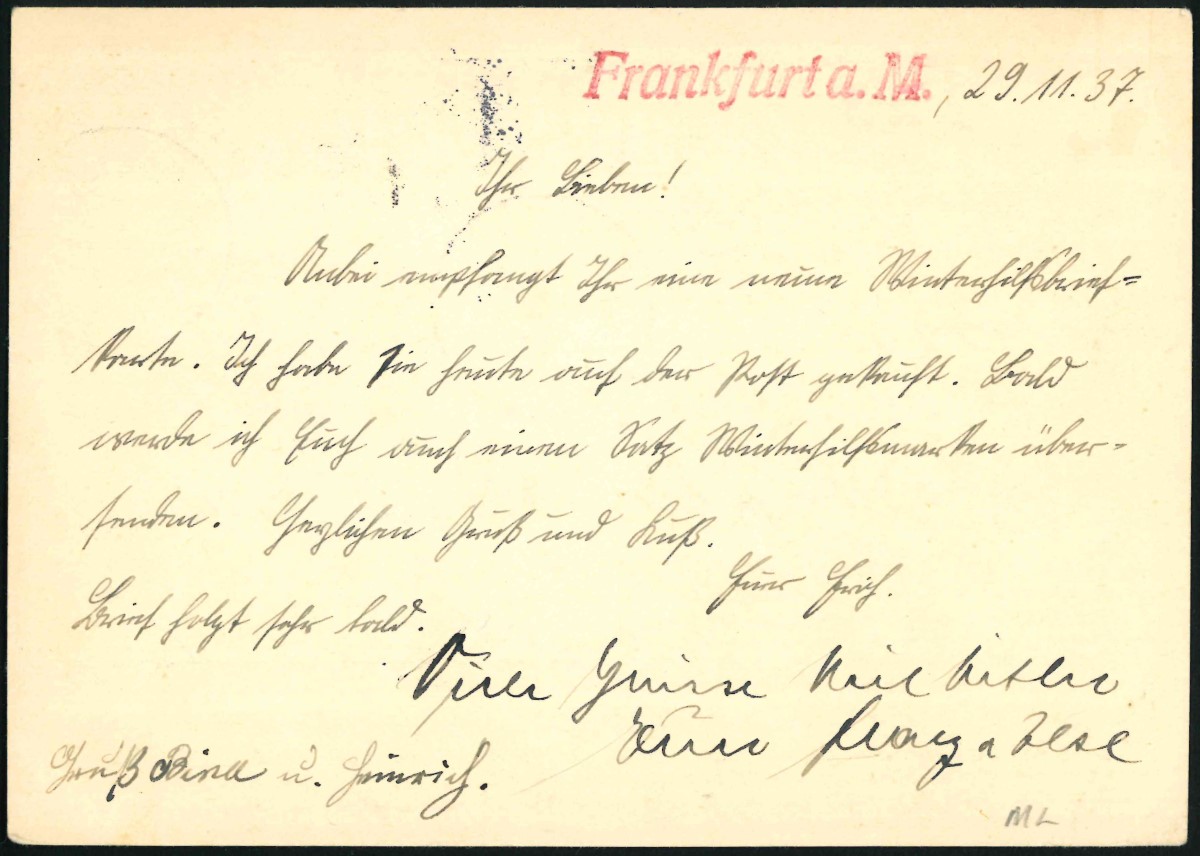 Frankfurt a. M., 29.11.37.
Ihr Lieben!
Anbei empfangt Ihr eine neue Winterhilfsbrief=
karte. Ich habe sie heute auf der Post gekauft. Bald
werde ich Euch auch einen Satz Winterhilfsmarken über-
senden. Herzlichen Gruß und Kuß.
Euer Erich.
Brief folgt sehr bald.
Viele Grüsse Heil Hitler
Euer Franz u Ilse
Gruß u. Heinrich.
ML